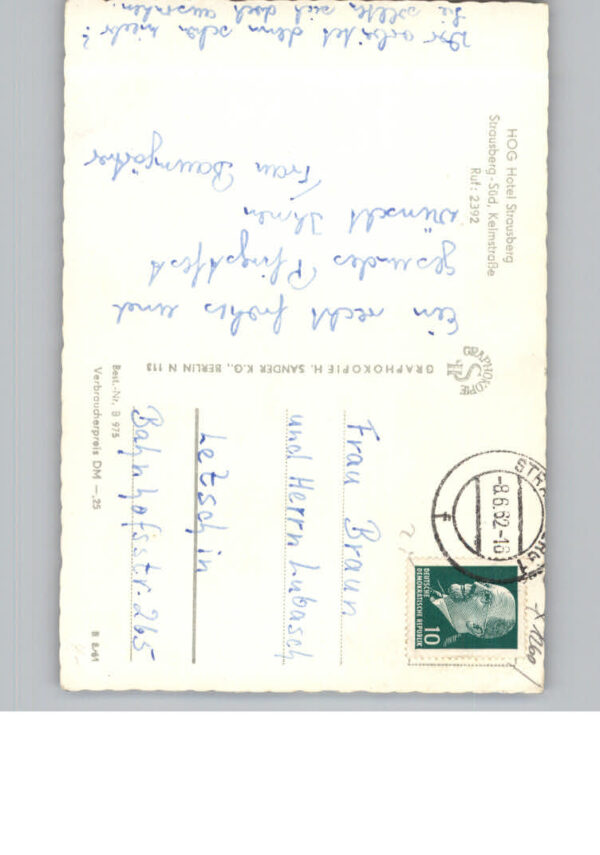 HOG Hotel Strausberg
Strausberg-Süd, Kelmstraße
Ruf: 2392
Ein recht frohes und
gesundes Pfingstfest
wünscht Ihnen
Frau
arbeitet denn schon nicht?
Sie sollten sich doch ausruhen.
GRAPHOKOPIE
GRAPHOKOPIE H. SANDER K.G., BERLIN N 113
-8.6.62-18
F
DEUTSCHE
DEMOKRATISCHE REPUBLIK
10
Frau Braun
und Herrn Lubasch
Letschin
Bahnhofsstr. 265
Best.-Nr. B 975
Verbraucherpreis DM -,25
B 8/61